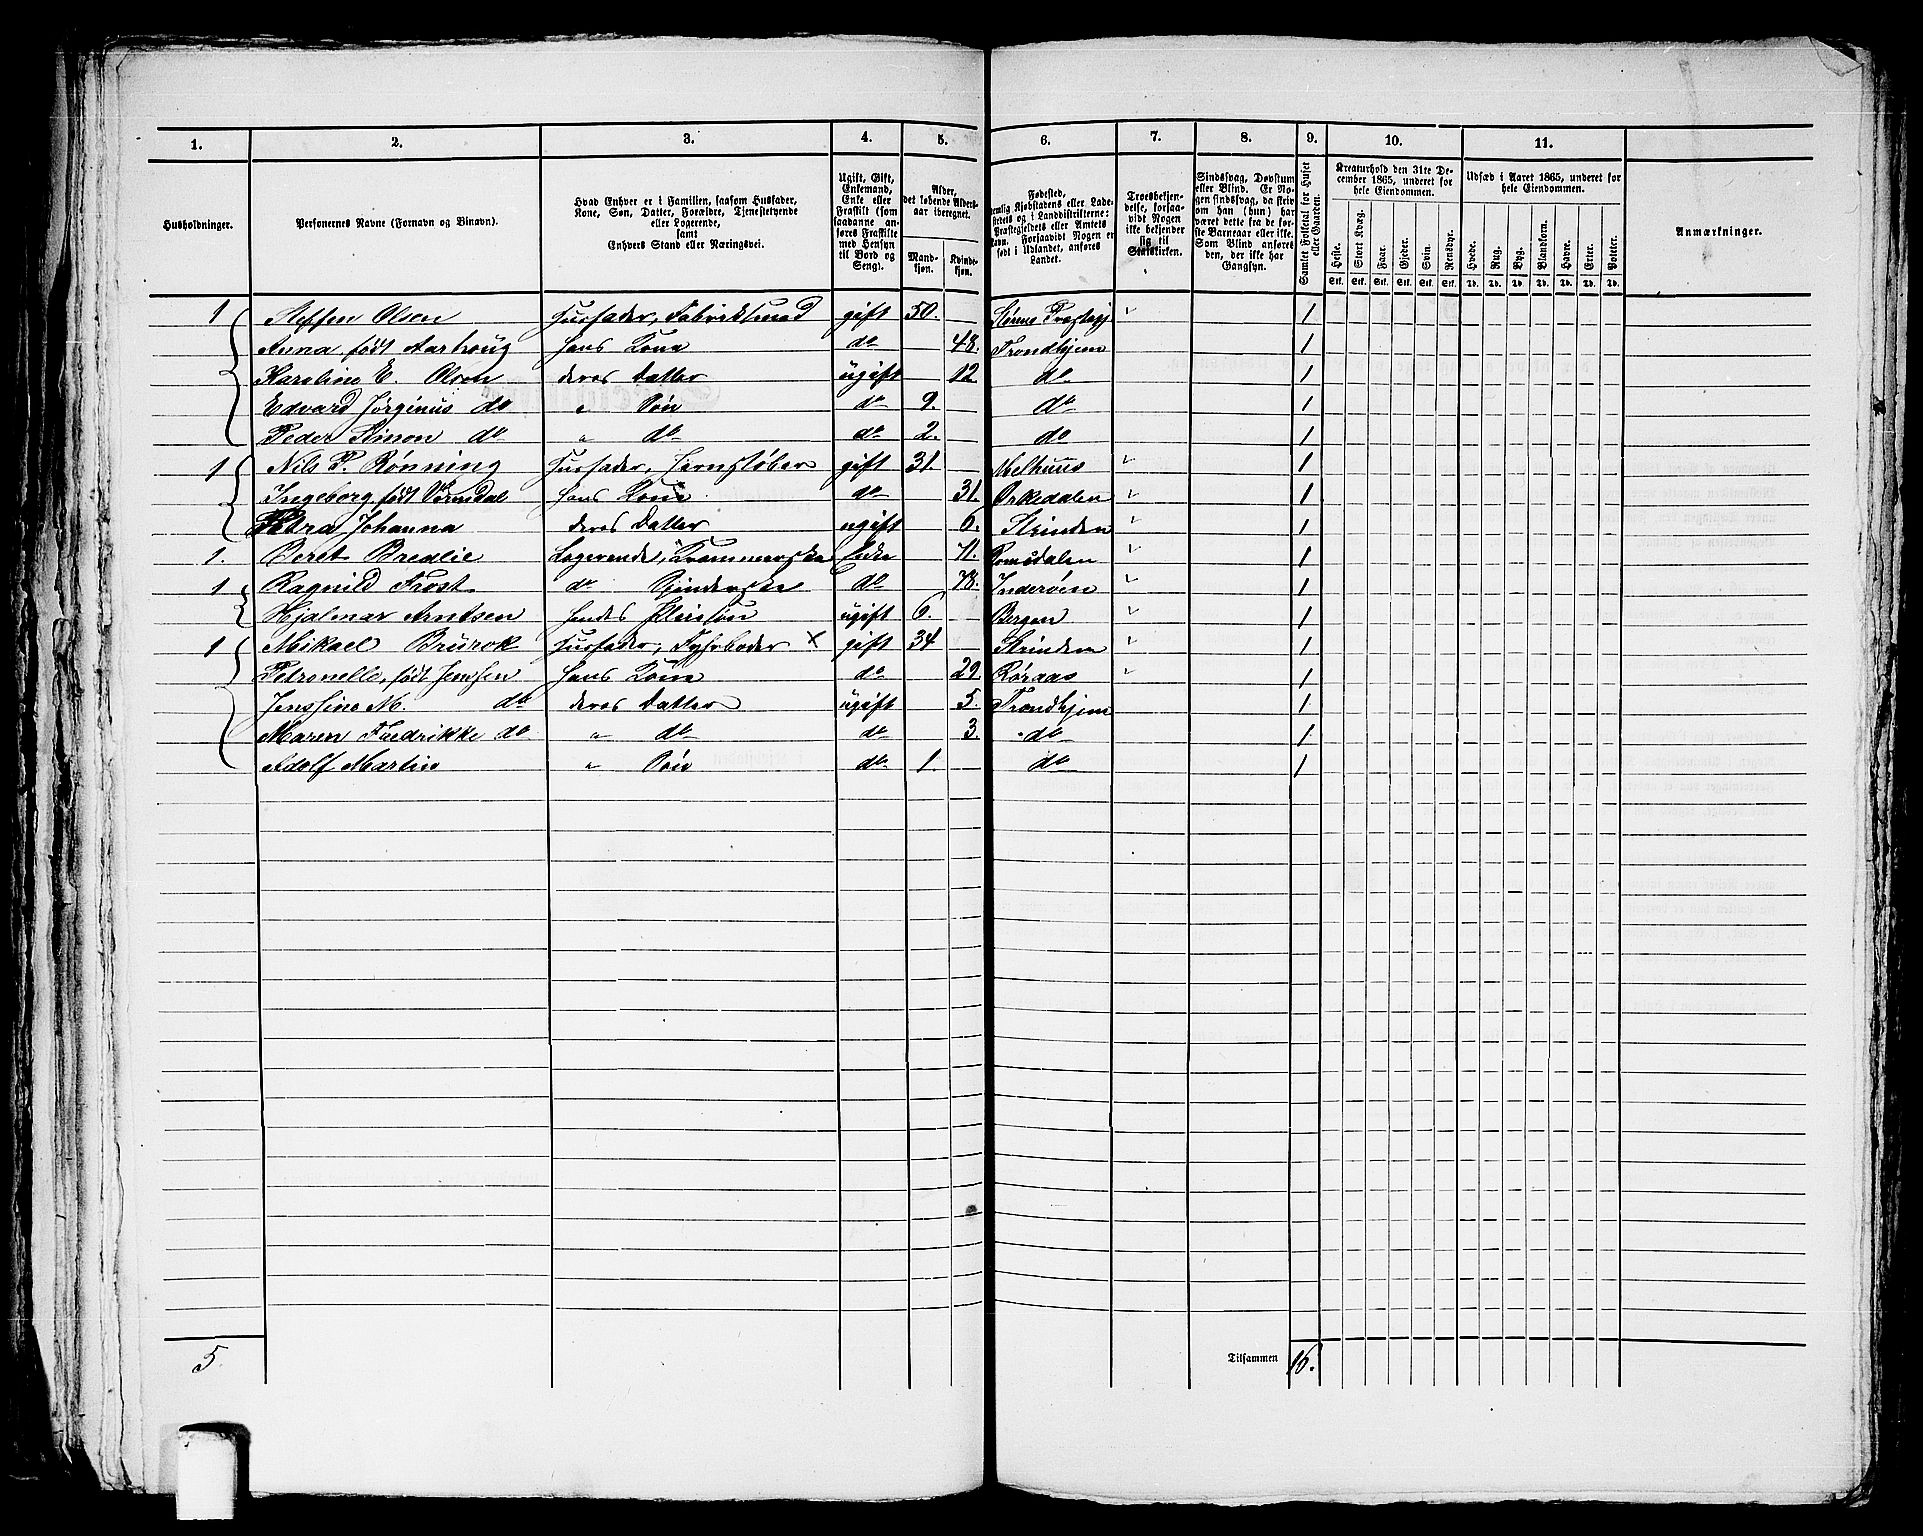 1. 2. 3. 4. 5. 6. 7. 8. 9. 10. 11.
Husholdninger.
Personernes Navne (Fornavn og Binavn).
Hvad Enhver er i Familien, saasom Husfader,
Kone, Søn, Datter, Forældre, Tjenestetyende
eller Logerende,
samt
Enhvers Stand eller Næringsvei.
Ugift, Gift,
Enkemand,
Enke eller
Fraskilt (som
saadanne an-
føres Fraskilte
med Hensyn
til Bord og
Seng).
Alder,
det løbende Alders-
aar iberegnet.
Mand-
kjøn.
Kvinde-
kjøn.
Fødested,
nemlig Kjøbstadens eller Lade-
stedets og i Landdistrikterne:
Præstegjeldets eller Amtets
Navn. Forsaavidt Nogen er
født i Udlandet, anføres
Landet.
Troesbekjen-
delse, forsaa-
vidt Nogen
ikke bekjender
sig til
Statskirken.
Sindssvag, Døvstum
eller Blind. Er No-
gen sindssvag, da skriv
om han (hun) har
været dette fra de før-
ste Barneaar eller ikke.
Som Blind anføres
den, der ikke har
Gangsyn.
Samlet Folketal for Huset
eller Gaarden.
Kreaturhold den 31te De-
cember 1865, underet for
hele Eiendommen.
Heste. Stort Kvæg. Faar. Gjeder. Svin. Rensdyr.
Stk. Stk. Stk. Stk. Stk. Stk.
Udsæd i Aaret 1865, underet for
hele Eiendommen.
Hvede. Rug. Byg. Blandkorn. Havre. Erter. Poteter.
Td. Td. Td. Td. Td. Td. Td.
Anmærkninger.
1 Steffen Olsen Husfader, Fabriksmed gift 50. Størens Præstegj 1
Anna født Aarhoug hans Kone do 48. Trondhjem 1
Karoline E. Olsen deres Datter ugift 12 do 1
Edvard Jørginus do " Søn do 9. do 1
Peder Simon do " do do 2. do 1
1 Nils P. Rønning Husfader, Jernstøber gift 31. Melhuus 1
Ingeborg født hans Kone do 31. Orkedalen 1
Petra Johanna deres Datter ugift 6. Strinden 1
1. Beret Bredlie Logerende, Enke 71. Romsdalen 1
1 Ragnild Frost do Spinderske do 78. Inderøen 1
Hjalmar Arntsen hendes Pleiesøn ugift 6. Bergen 1
1 Mikael Brurok Husfader, Fyrbøder X gift 34 Strinden 1
Petronelle, født Jenssen hans Kone do 29. Røraas 1
Jenssine M. do deres Datter ugift 5. Trondhjem 1
Maren Fredrikke do " do do 3. " do 1
Adolf Martin " Søn do 1. do 1
5 Tilsammen 16.